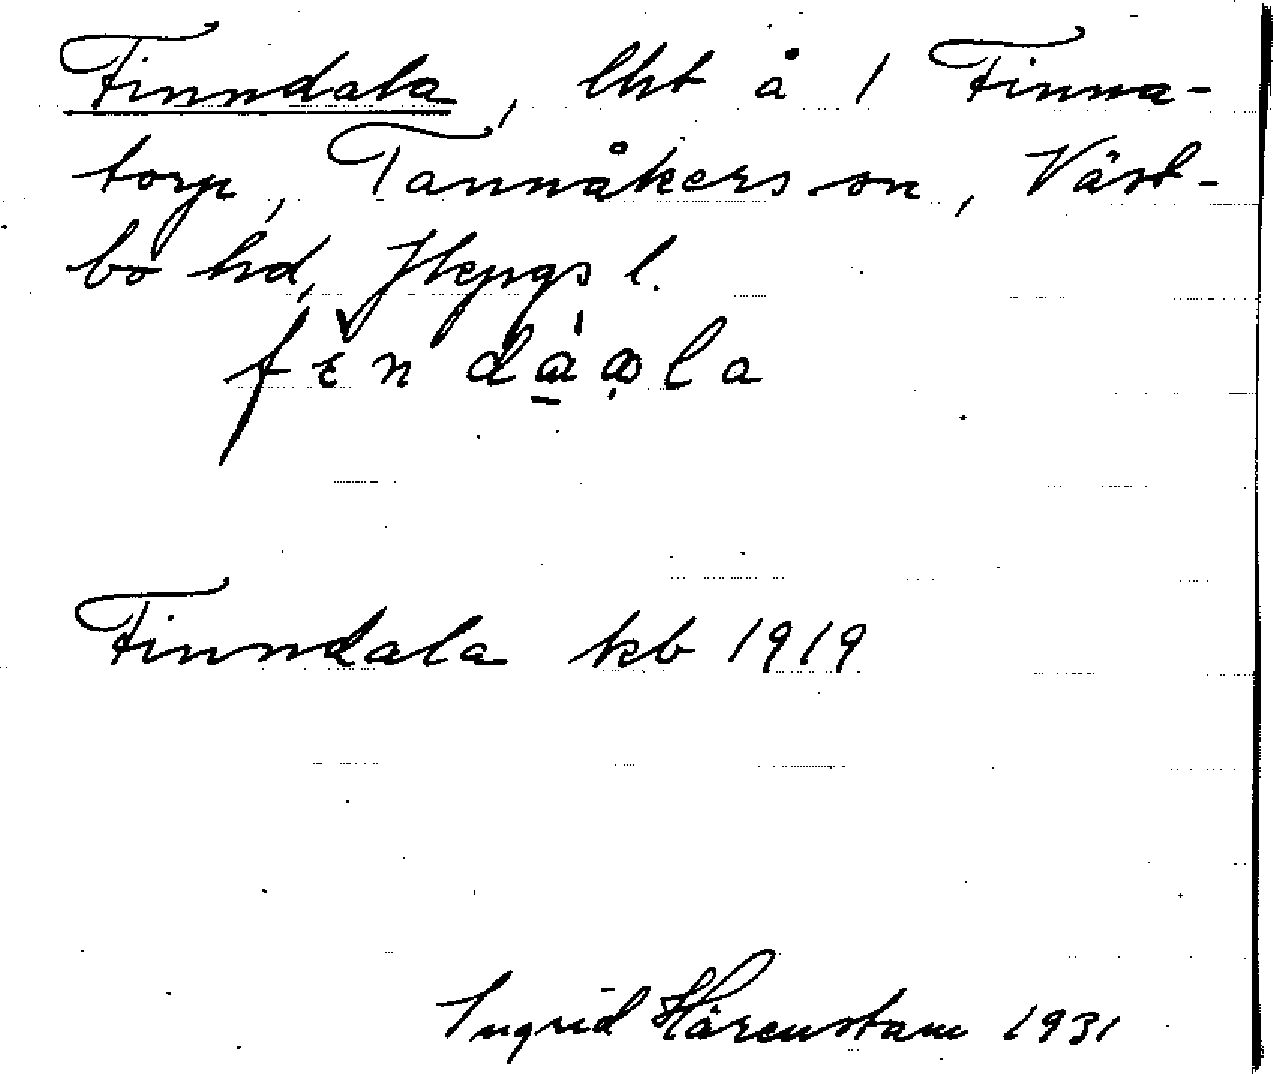 Finndala, lht å 1 Finna-
torp, Tannåkers sn, Väst-
bo hd, Jkpgs l.
Finndala kb 1919
Ingrid Härenstam 1931